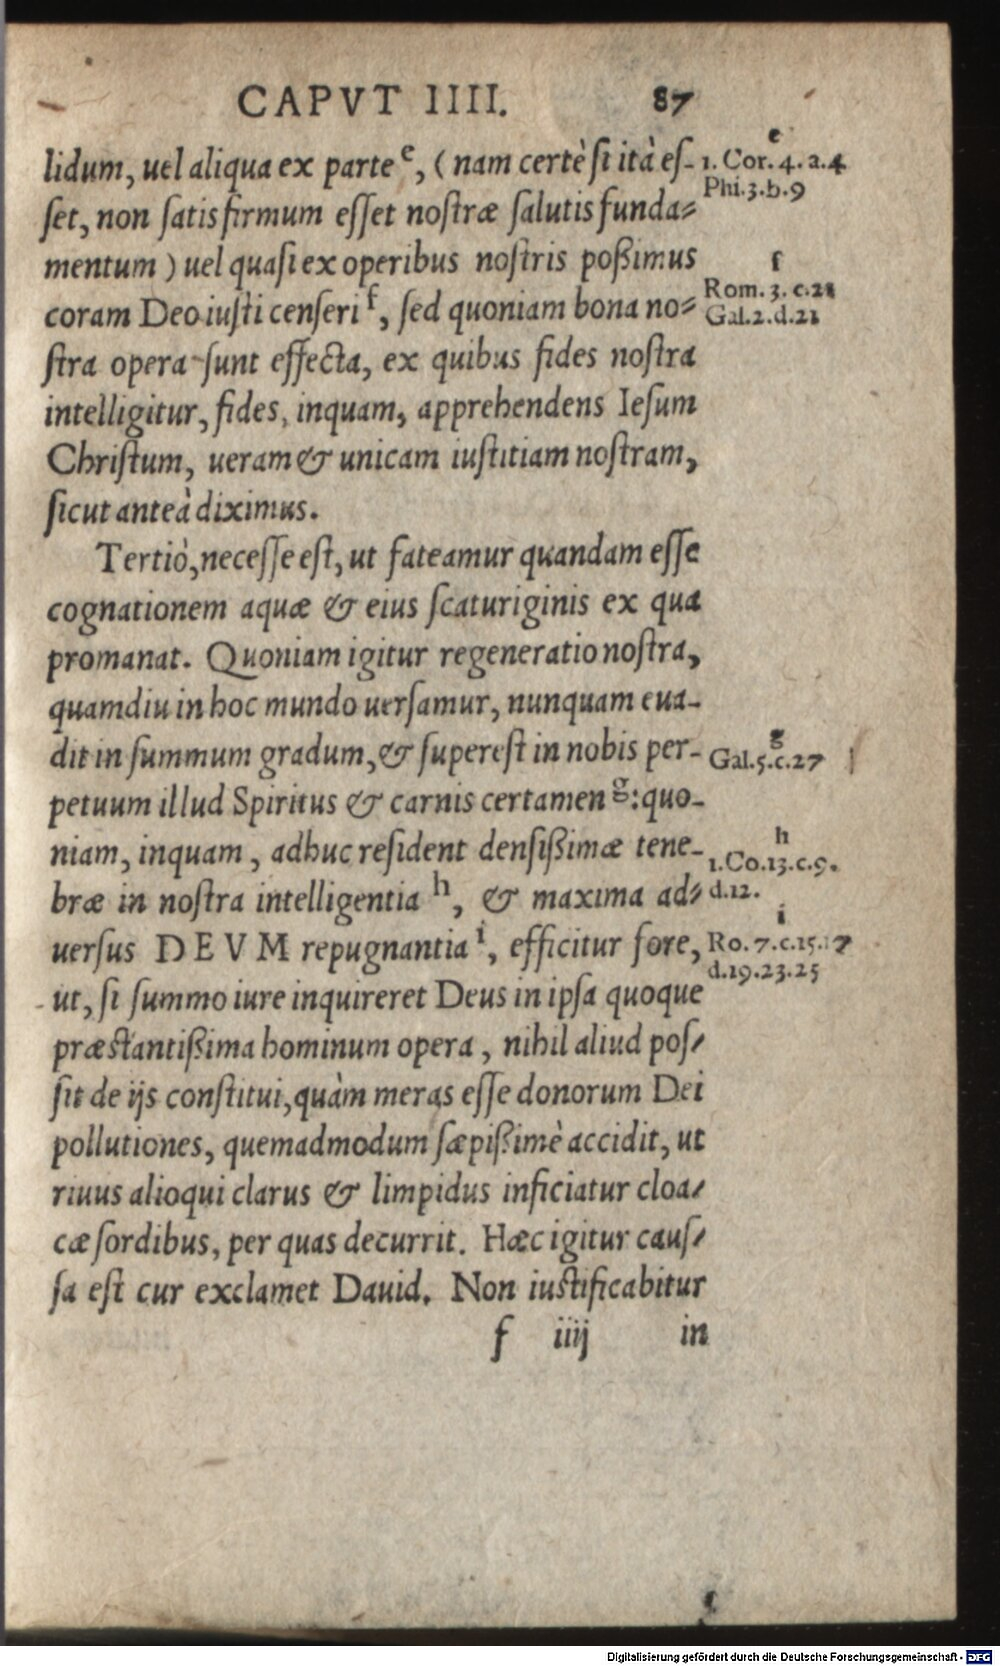 CAPVT IIII. 87
lidum, uel aliqua ex parte e, (nam certè si ità es-
set, non satis firmum esset nostræ salutis funda-
mentum) uel quasi ex operibus nostris poßimus
coram Deo iusti censeri f, sed quoniam bona no-
stra opera sunt effecta, ex quibus fides nostra
intelligitur, fides, inquam, apprehendens Iesum
Christum, ueram & unicam iustitiam nostram,
sicut anteà diximus.
Tertiò, necesse est, ut fateamur quandam esse
cognationem aquæ & eius scaturiginis ex qua
promanat. Quoniam igitur regeneratio nostra,
quamdiu in hoc mundo uersamur, nunquam eua-
dit in summum gradum, & superest in nobis per-
petuum illud Spiritus & carnis certamen g: quo-
niam, inquam, adhuc resident densißimæ tene-
bræ in nostra intelligentia h, & maxima ad-
uersus DEVM repugnantia i, efficitur fore,
ut, si summo iure inquireret Deus in ipsa quoque
præstantißima hominum opera, nihil aliud pos-
sit de ijs constitui, quàm meras esse donorum Dei
pollutiones, quemadmodum sæpißimè accidit, ut
riuus alioqui clarus & limpidus inficiatur cloa-
cæ sordibus, per quas decurrit. Hæc igitur caus-
sa est cur exclamet Dauid. Non iustificabitur
f iiij in
e
1. Cor. 4. a.4
Phi.3.b.9
f
Rom. 3. c.21
Gal.2.d.21
g
Gal.5.c.27
h
1.Co.13.c.9.
d.12.
i
Ro. 7.c.15.17
d.19.23.25
Digitalisierung gefördert durch die Deutsche Forschungsgemeinschaft - DFG